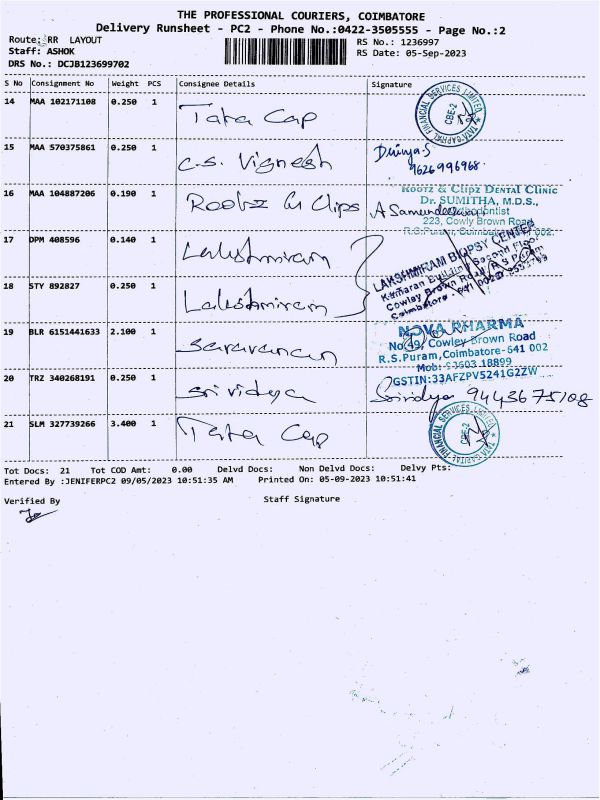 THE PROFESSIONAL COURIERS, COIMBATORE
Delivery Runsheet - PC2 - Phone No.:0422-3505555 - Page No.:2
Route: RR LAYOUT
RS No.: 1236997
Staff: ASHOK
RS Date: 05-Sep-2023
DRS No.: DCJB123699702
S No Consignment No Weight PCS Consignee Details Signature
14 MAA 102171108 0.250 1 Tata Cap
TATA CAPITAL FINANCIAL SERVICES LIMITED
CBE-2
15 MAA 570375861 0.250 1 C.S. Vignesh
9626996968
16 MAA 104887206 0.190 1 Rootz & Clips
Rootz & Clipz Dental Clinic
Dr. SUMITHA, M.D.S.,
223, Cowly Brown Road
R.S.Puram, Coimbatore 002.
17 DPM 408596 0.140 1 Lakshmiram
LAKSHMIRAM BIOPSY CENTER
Kumaran Building Second Floor
Cowley Brown Road, R S Puram
Coimbatore
18 STY 892827 0.250 1 Lakshmiram
19 BLR 6151441633 2.100 1 Saravanan
NOVA PHARMA
No.49, Cowley Brown Road
R.S.Puram, Coimbatore-641 002
Mob: 93603 18899
GSTIN:33AFZPV5241G2ZW
20 TRZ 340268191 0.250 1 Srividya
Srividya 9443675108
21 SLM 327739266 3.400 1 Tata Cap
TATA CAPITAL FINANCIAL SERVICES LIMITED
CBE-2
Tot Docs: 21 Tot COD Amt: 0.00 Delvd Docs: Non Delvd Docs: Delvy Pts:
Entered By :JENIFERPC2 09/05/2023 10:51:35 AM Printed On: 05-09-2023 10:51:41
Verified By
Staff Signature